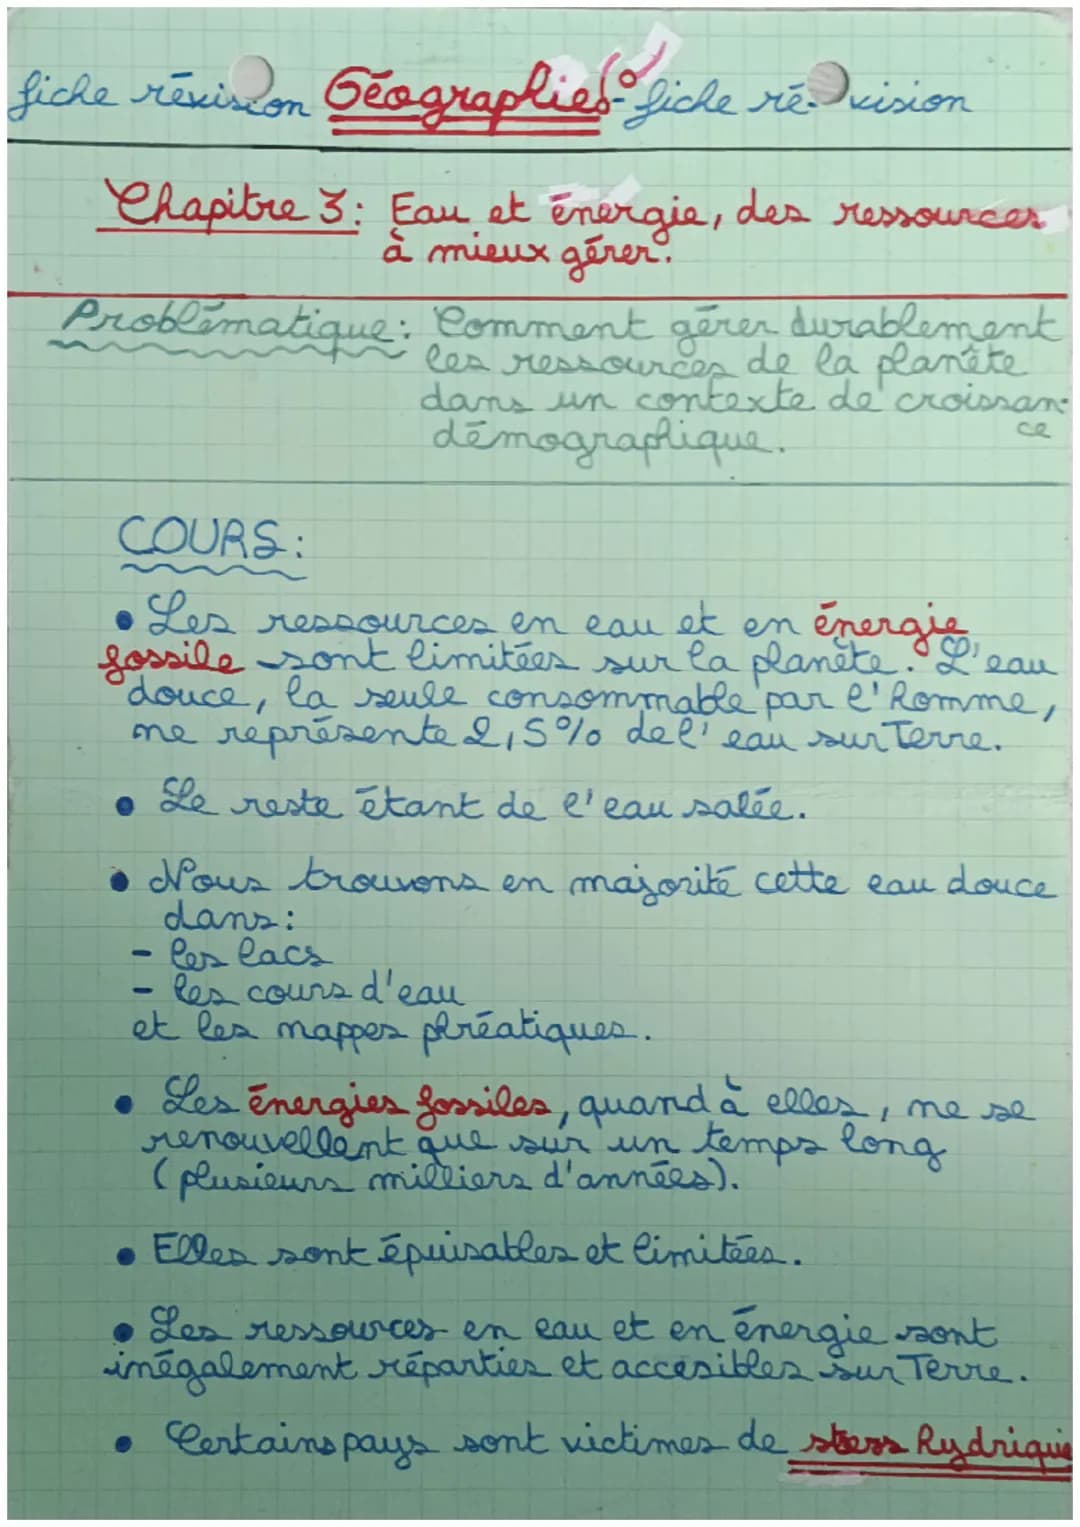 fiche révision Géographie fiche ré-vision
Chapitre 3: Eau et énergie, des ressources
à mieux gérer.
Problématique: Comment gérer durablement
les ressources de la planète
dans un contexte de croissan-
ce
démographique.
COURS:
• Les ressources en eau et en énergie
fossile sont limitées sur la planète. L'eau
douce, la seule consommable par l'homme,
ne représente 2,5% de l'eau sur Terre.
• Le reste étant de l'eau salée.
• Nous trouvons en majorité cette eau douce
dans:
- les lacs
- les cours d'eau
et les nappes phréatiques.
• Les énergies fossiles, quand à elles, ne se
renouvellent que sur un temps long
(plusieurs milliers d'années).
• Elles sont épuisables et limitées.
• Les ressources en eau et en énergie sont
inégalement réparties et accesibles sur Terre.
• Certains pays sont victimes de stress hydrique